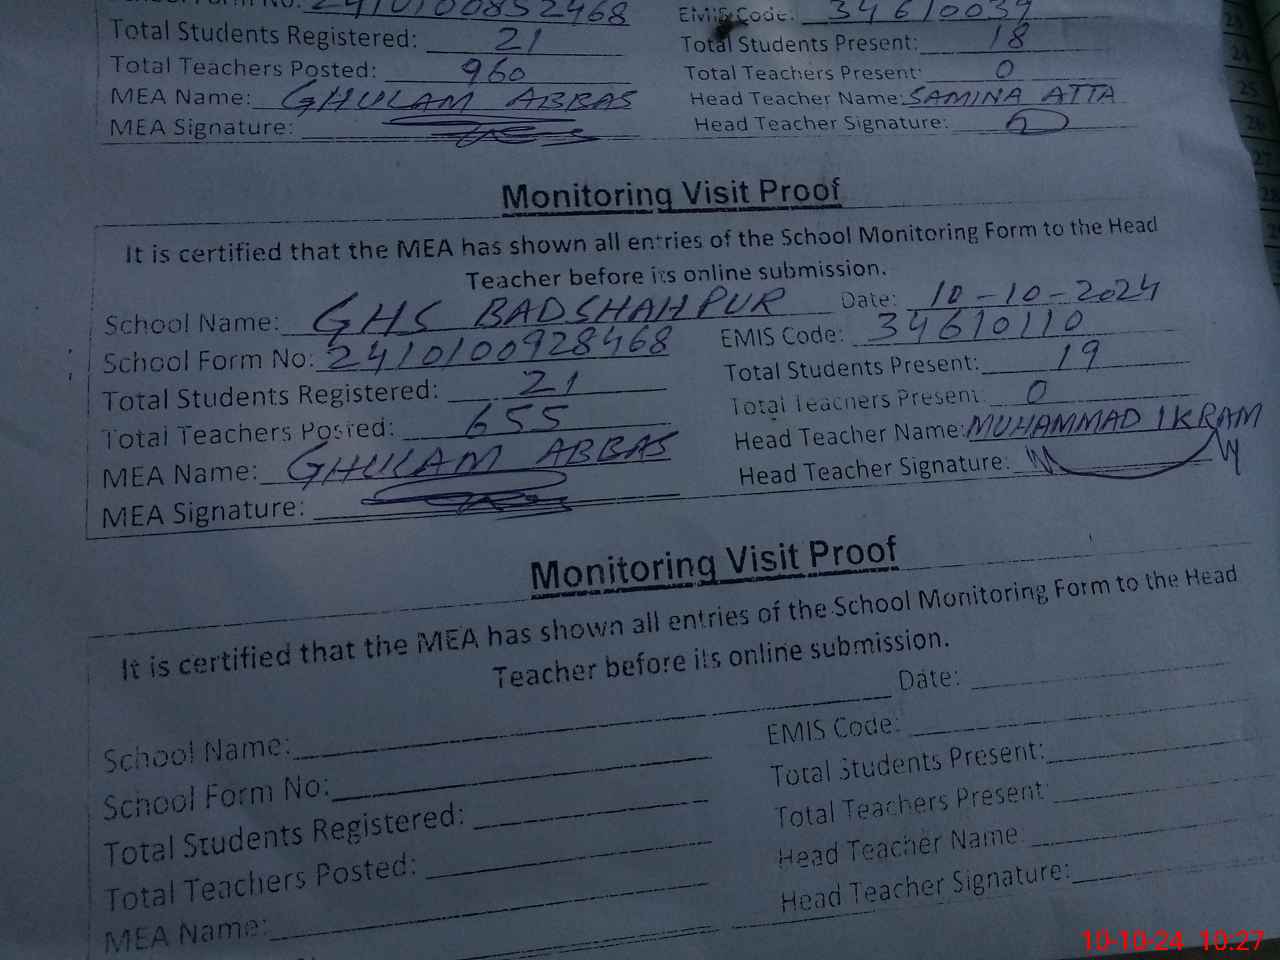 School Form No: 2410100852468 EMIS Code: 34610039
Total Students Registered: 21 Total Students Present: 18
Total Teachers Posted: 960 Total Teachers Present: 0
MEA Name: GHULAM ABBAS Head Teacher Name: SAMINA ATTA
MEA Signature: Head Teacher Signature:
Monitoring Visit Proof
It is certified that the MEA has shown all entries of the School Monitoring Form to the Head
Teacher before its online submission.
School Name: GHS BADSHAHPUR Date: 10-10-2024
School Form No: 2410100928468 EMIS Code: 34610110
Total Students Registered: 21 Total Students Present: 19
Total Teachers Posted: 655 Total Teachers Present 0
MEA Name: GHULAM ABBAS Head Teacher Name: MUHAMMAD IKRAM
MEA Signature: Head Teacher Signature:
Monitoring Visit Proof
It is certified that the MEA has shown all entries of the School Monitoring Form to the Head
Teacher before its online submission.
School Name: Date:
School Form No: EMIS Code:
Total Students Registered: Total Students Present:
Total Teachers Posted: Total Teachers Present
MEA Name: Head Teacher Name
Head Teacher Signature:
23
24
25
26
27
28
10-10-24 10:27